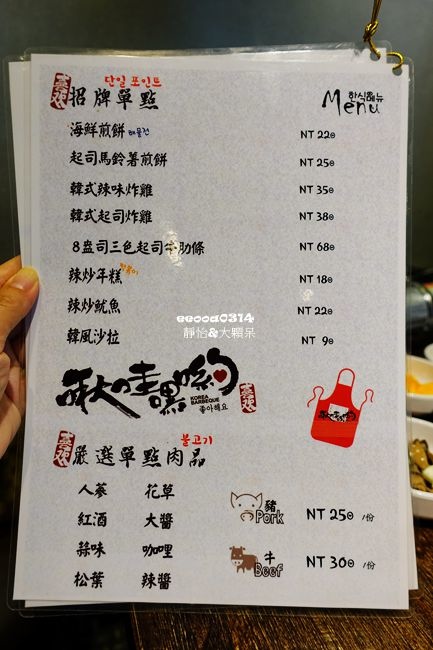 喜欢
招牌單點
단일 포인트
한식메뉴
Menu
海鮮煎餅 해물전 NT 220
起司馬鈴薯煎餅 NT 250
韓式辣味炸雞 NT 350
韓式起司炸雞 NT 380
8盎司三色起司牛肋條 NT 680
辣炒年糕 떡볶이 NT 180
辣炒魷魚 NT 220
韓風沙拉 NT 90
eeooa0314
靜怡&大顆呆
啾哇嘿喲
KOREA BARBEQUE
좋아해요
喜欢
喜欢
嚴選單點肉品
불고기
人蔘 花草
紅酒 大醬
蒜味 咖哩
松葉 辣醬
豬 Pork NT 250 /份
牛 Beef NT 300 /份